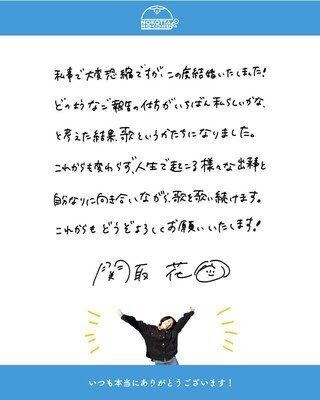 NOROTTA
私事で大変恐縮ですが、この度結婚いたしました!
どのようなご報告の仕方がいちばん私らしいかな、
と考えた結果、歌というかたちになりました。
これからも変わらず、人生で起こる様々な出来事と
自分なりに向き合いながら、歌を歌い続けます。
これからもどうぞよろしくお願いいたします!
関取 花
いつも本当にありがとうございます!